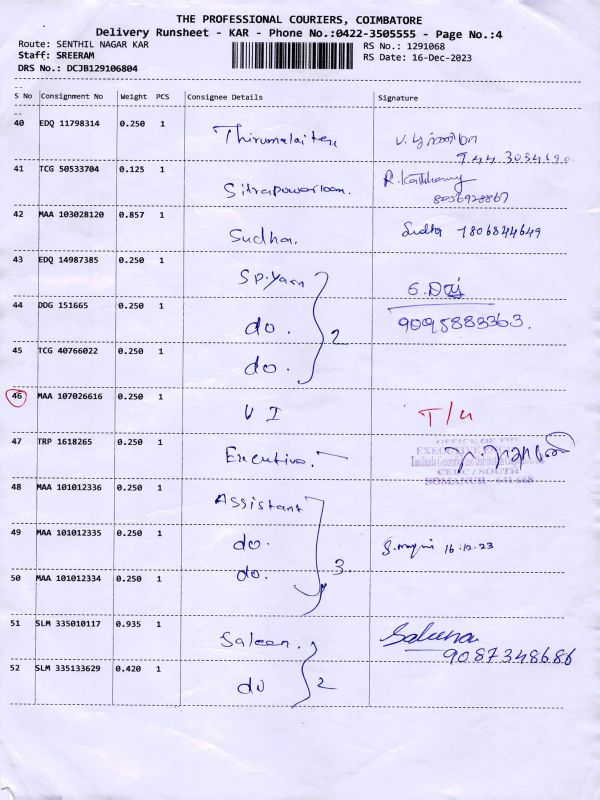 THE PROFESSIONAL COURIERS, COIMBATORE
Delivery Runsheet - KAR - Phone No.:0422-3505555 - Page No.:4
Route: SENTHIL NAGAR KAR RS No.: 1291068
Staff: SREERAM RS Date: 16-Dec-2023
DRS No.: DCJB129106804
S No Consignment No Weight PCS Consignee Details Signature
40 EDQ 11798314 0.250 1
41 TCG 50533704 0.125 1 Sitrapowerloom.
8056928867
42 MAA 103028120 0.857 1 Sudha. Sudha 7806844649
43 EDQ 14987385 0.250 1 SP.Yarn
44 DDG 151665 0.250 1 do. 2 9095883363.
45 TCG 40766022 0.250 1 do.
46 MAA 107026616 0.250 1 V I T/U
47 TRP 1618265 0.250 1 Executive.
OFFICE OF THE
CEDC / SOUTH
SOMANUR - 641 668
48 MAA 101012336 0.250 1 Assistant
49 MAA 101012335 0.250 1 do. 16.12.23
50 MAA 101012334 0.250 1 do. 3.
51 SLM 335010117 0.935 1 Saleen. Saleena
9087348686
52 SLM 335133629 0.420 1 do 2